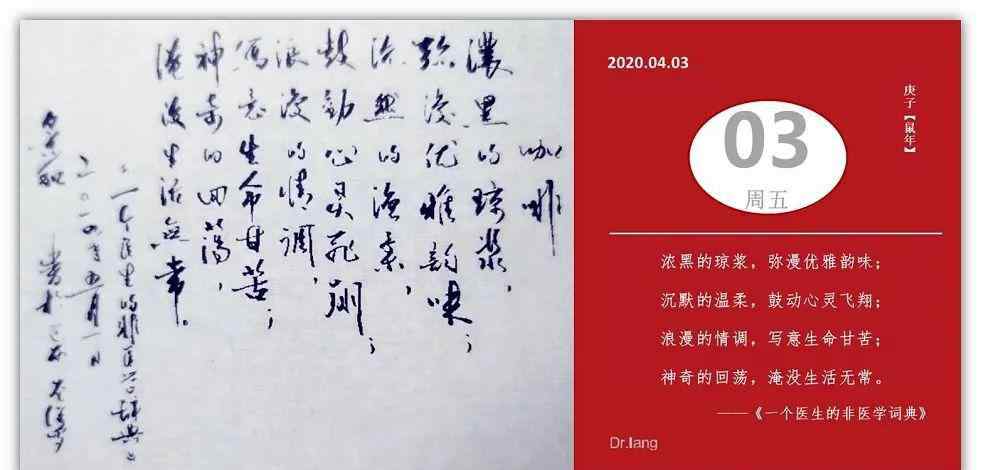 咖啡
濃黑的琼浆，
弥漫优雅韵味；
沉默的温柔，
鼓动心灵飞翔；
浪漫的情调，
写意生命甘苦；
神奇的回荡，
淹没生活無常。
一个医生的非医学辞典
二〇一六年五月一日
2020.04.03
庚子【鼠年】
03
周五
浓黑的琼浆，弥漫优雅韵味；
沉默的温柔，鼓动心灵飞翔；
浪漫的情调，写意生命甘苦；
神奇的回荡，淹没生活无常。
——《一个医生的非医学词典》
Dr.lang